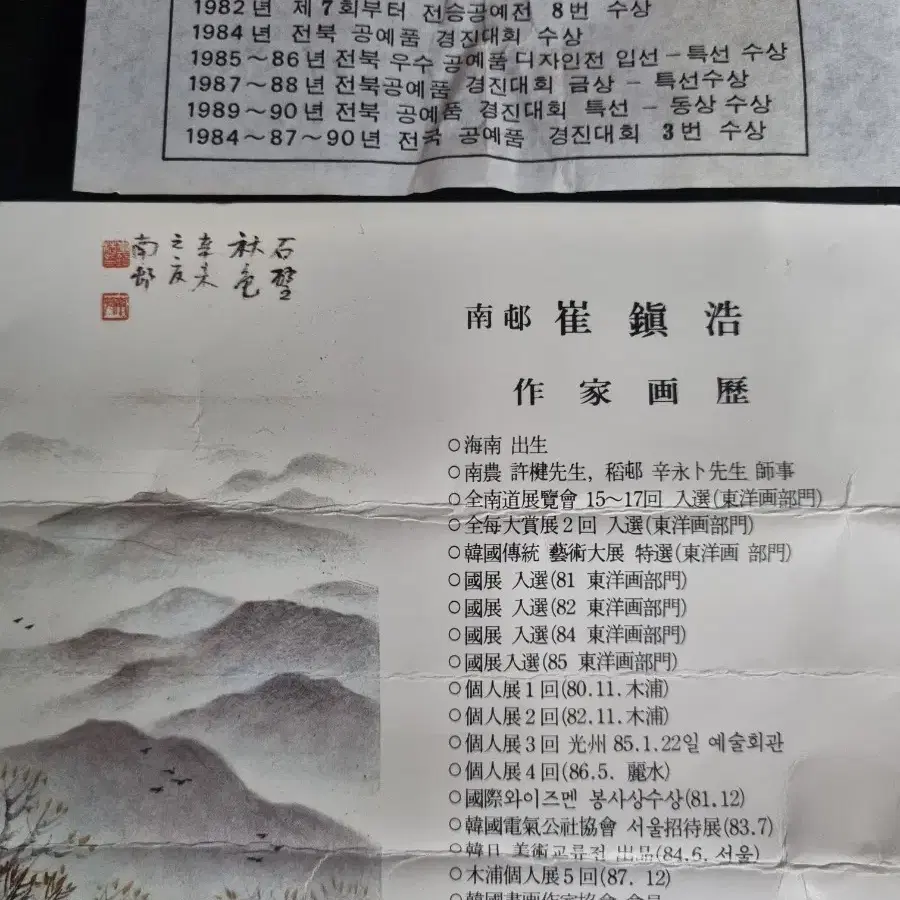 1982년 제7회부터 전승공예전 8번 수상
1984년 전북 공예품 경진대회 수상
1985~86년 전북 우수 공예품 디자인전 입선-특선 수상
1987~88년 전북공예품 경진대회 금상 - 특선수상
1989~90년 전북 공예품 경진대회 특선 - 동상 수상
1984~87~90년 전국 공예품 경진대회 3번 수상
石壁
秋色
辛未
之夏
南邨
南邨 崔鎭浩
作家画歷
○海南 出生
○南農 許楗先生, 稻邨 辛永卜先生 師事
○全南道展覽會 15~17回 入選(東洋画部門)
○全每大賞展2回 入選(東洋画部門)
○韓國傳統 藝術大展 特選(東洋画 部門)
○國展 入選(81 東洋画部門)
○國展 入選(82 東洋画部門)
○國展 入選(84 東洋画部門)
○國展入選(85 東洋画部門)
○個人展1回(80.11.木浦)
○個人展2回(82.11.木浦)
○個人展3回 光州 85.1.22일 예술회관
○個人展4回(86.5. 麗水)
○國際와이즈멘 봉사상수상(81.12)
○韓國電氣公社協會 서울招待展(83.7)
○韓日 美術교류전 出品(84.6. 서울)
○木浦個人展5回(87. 12)
○韓國書画作家協會 會員